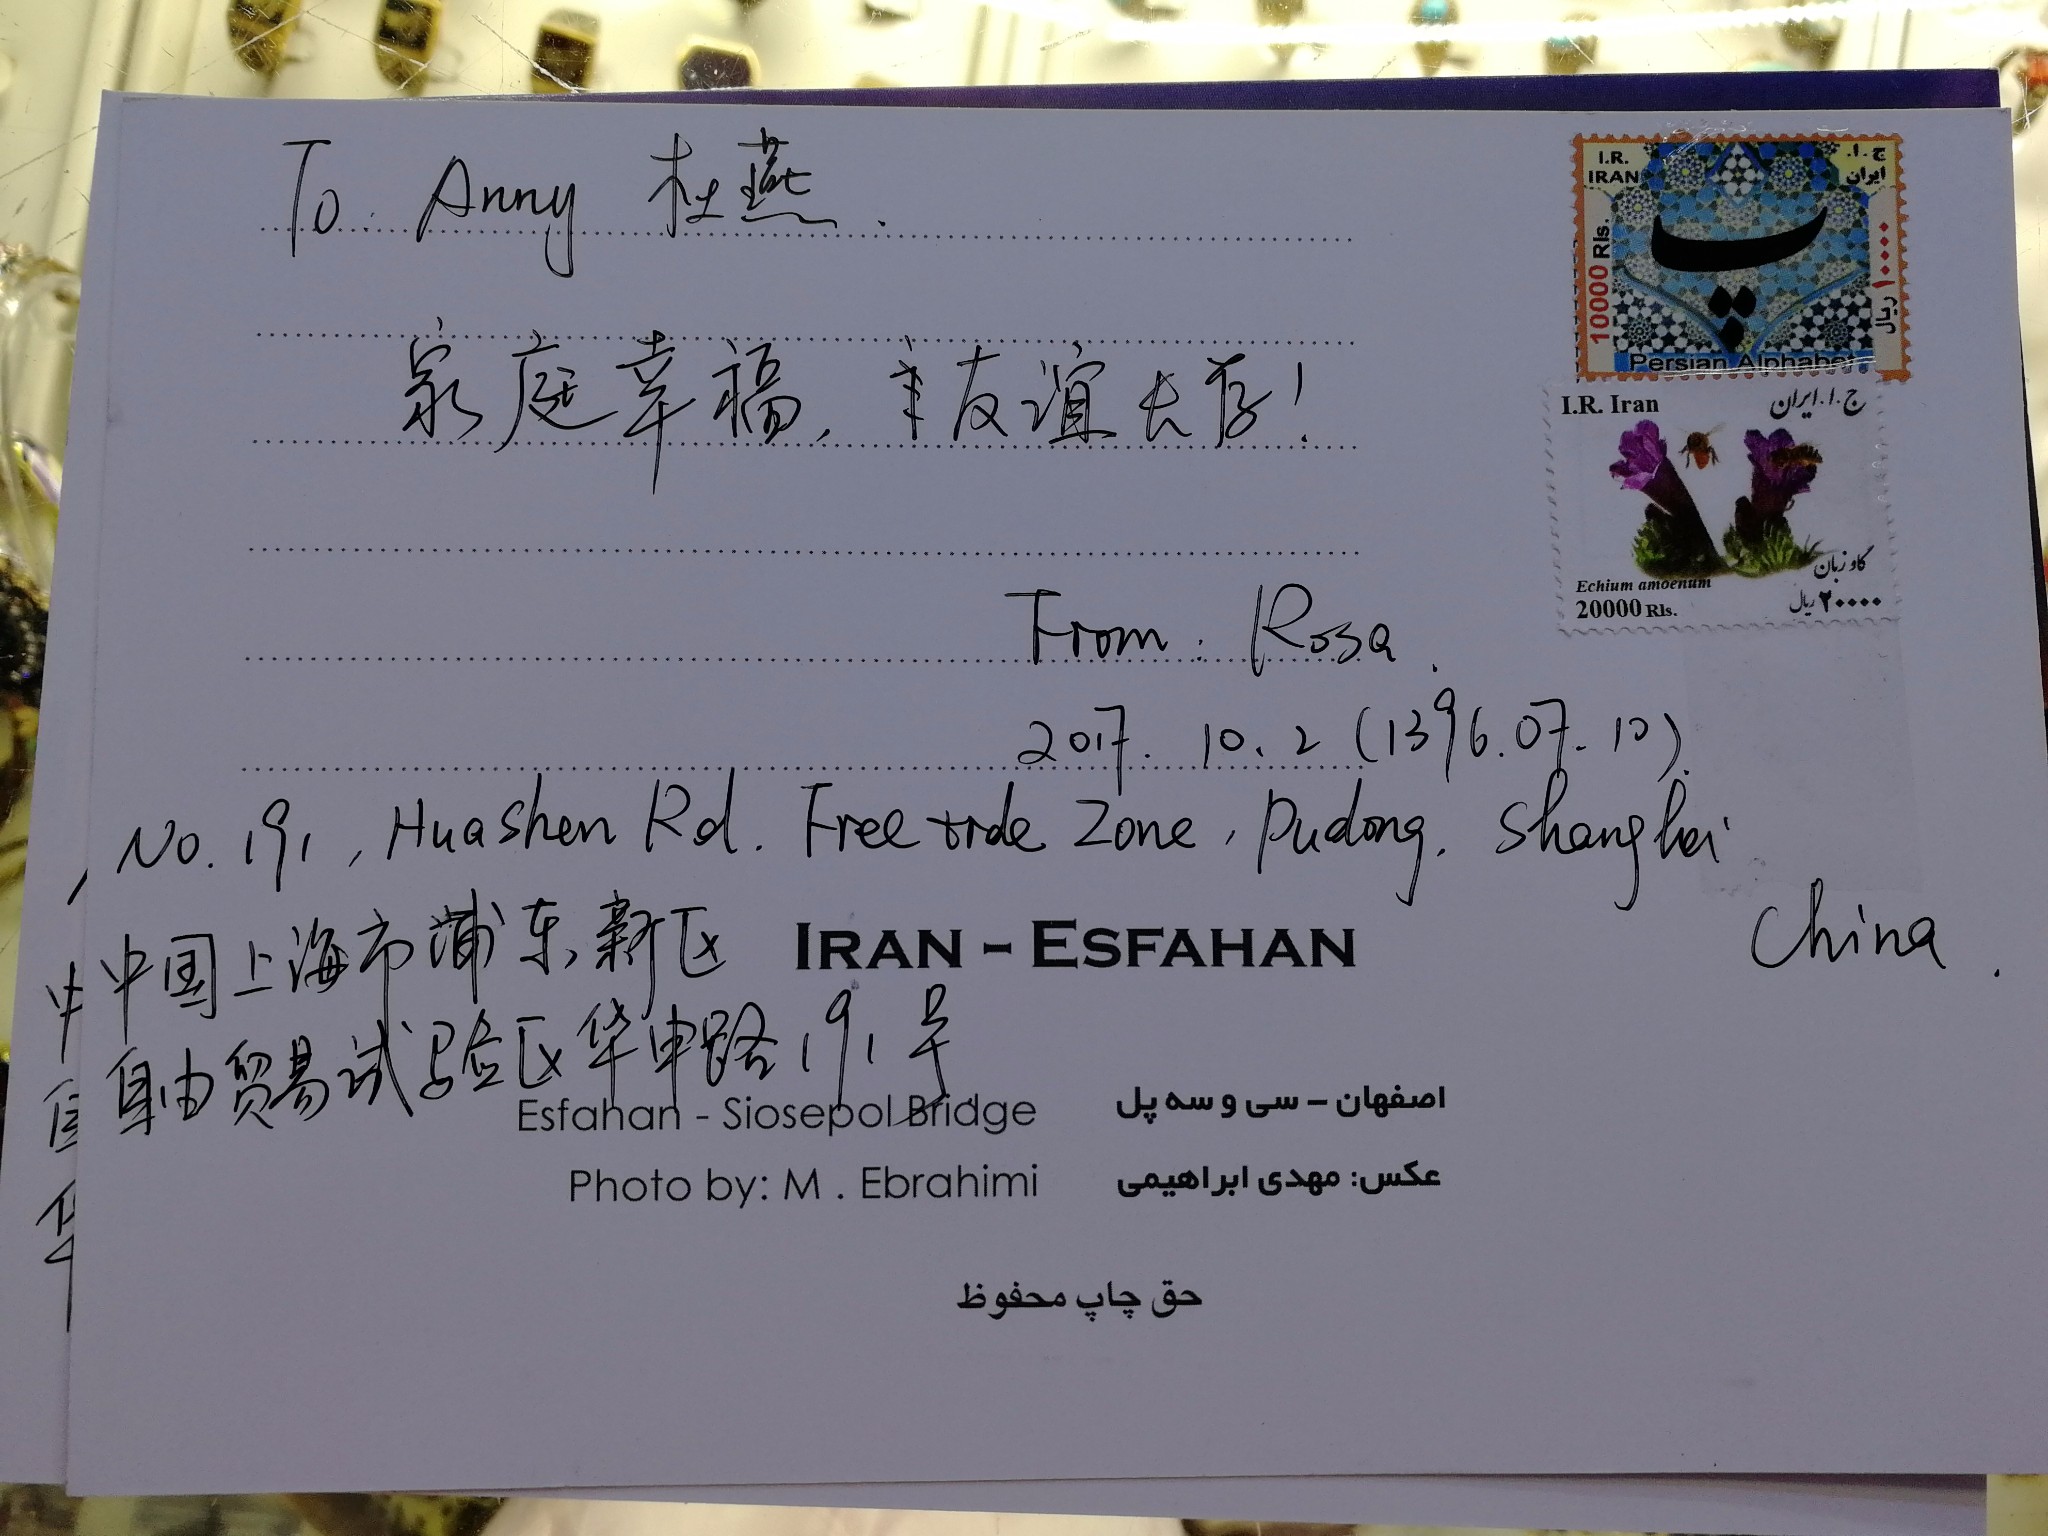 To: Anny 杜燕.
家庭幸福, 友谊长存!
From: Rosa.
2017. 10. 2 (1396.07.10).
No. 191, Huashen Rd. Free trde Zone, Pudong, Shanghai
China.
中国上海市浦东新区
自由贸易试验区华申路191号
I.R.
IRAN
ج.ا.
ایران
10000 Rls.
۱۰۰۰۰ ریال
پ
Persian Alphabet
I.R. Iran
ج.ا.ایران
Echium amoenum
گاو زبان
20000 Rls.
۲۰۰۰۰ ریال
IRAN - ESFAHAN
Esfahan - Siosepol Bridge
اصفهان - سی و سه پل
Photo by: M . Ebrahimi
عکس: مهدی ابراهیمی
حق چاپ محفوظ